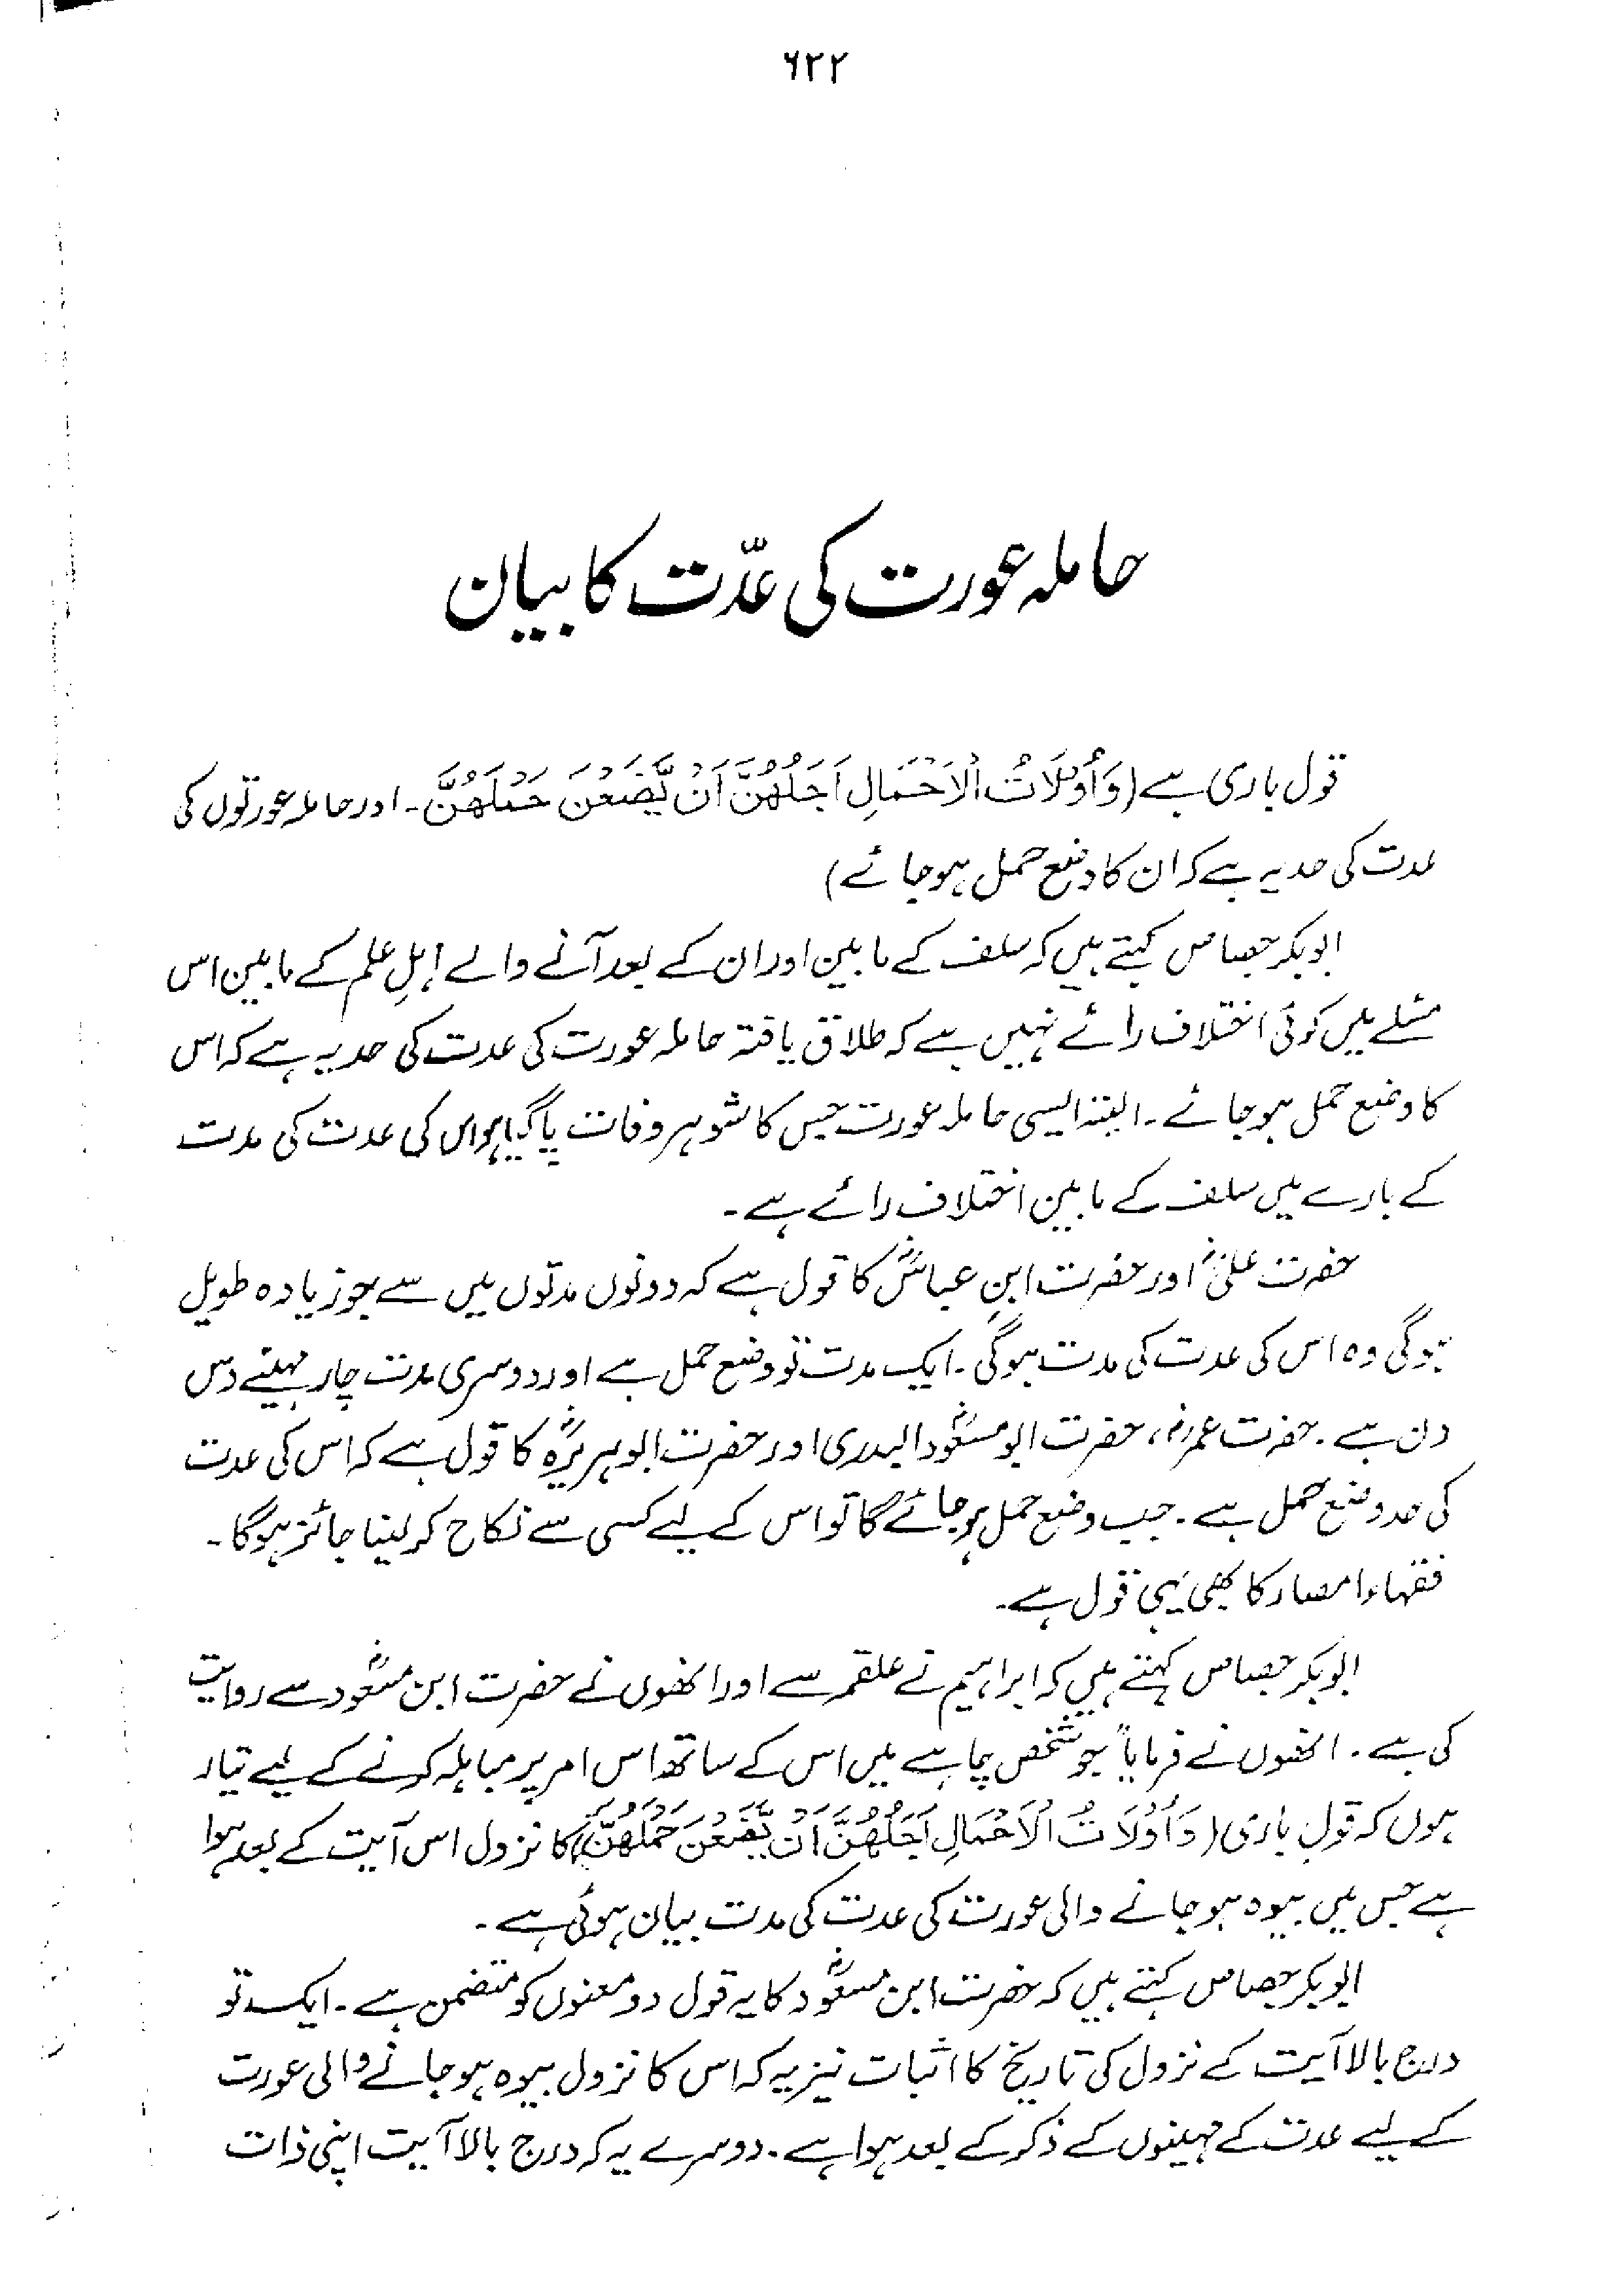 ۶۲۲
حاملہ عورت کی عدّت کا بیان
قول باری ہے (وَأُولَاتُ الْاَحْمَالِ اَجَلُهُنَّ اَنْ يَّضَعْنَ حَمْلَهُنَّ۔ اور حاملہ عورتوں کی
عدت کی حد یہ ہے کہ ان کا وضع حمل ہو جائے)
ابوبکر جصاص کہتے ہیں کہ سلف کے مابین اور ان کے بعد آنے والے اہلِ علم کے مابین اس
مسئلے میں کوئی اختلاف رائے نہیں ہے کہ طلاق یافتہ حاملہ عورت کی عدت کی حد یہ ہے کہ اس
کا وضع حمل ہو جائے۔ البتہ ایسی حاملہ عورت جس کا شوہر وفات پا گیا ہو اس کی عدت کی مدت
کے بارے میں سلف کے مابین اختلاف رائے ہے۔
حضرت علیؓ اور حضرت ابنِ عباسؓ کا قول ہے کہ دونوں مدتوں میں سے جو زیادہ طویل
ہوگی وہ اس کی عدت کی مدت ہوگی۔ ایک مدت تو وضع حمل ہے اور دوسری مدت چار مہینے دس
دن ہے۔ حضرت عمرؓ، حضرت ابو مسعودؓ البدری اور حضرت ابوہریرہؓ کا قول ہے کہ اس کی عدت
کی حد وضع حمل ہے۔ جب وضع حمل ہو جائے گا تو اس کے لیے کسی سے نکاح کر لینا جائز ہوگا۔
فقہاء امصار کا بھی یہی قول ہے۔
ابوبکر جصاص کہتے ہیں کہ ابراہیم نے علقمہ سے اور انھوں نے حضرت ابن مسعودؓ سے روایت
کی ہے۔ انھوں نے فرمایا "جو شخص چاہے میں اس کے ساتھ اس امر پر مباہلہ کرنے کے لیے تیار
ہوں کہ قول باری (وَاُولَاتُ الْاَحْمَالِ اَجَلُهُنَّ اَنْ يَّضَعْنَ حَمْلَهُنَّ) کا نزول اس آیت کے بعد ہوا
ہے جس میں بیوہ ہو جانے والی عورت کی عدت کی مدت بیان ہوئی ہے۔
ابوبکر جصاص کہتے ہیں کہ حضرت ابن مسعودؓ کا یہ قول دو معنوں کو متضمن ہے۔ ایک تو
درج بالا آیت کے نزول کی تاریخ کا اثبات نیز یہ کہ اس کا نزول بیوہ ہو جانے والی عورت
کے لیے عدت کے مہینوں کے ذکر کے بعد ہوا ہے۔ دوسرے یہ کہ درج بالا آیت اپنی ذات